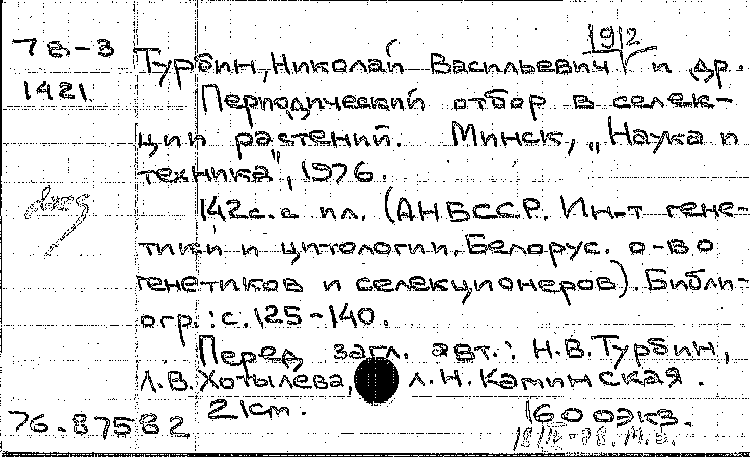 1912
7В-3 Турбин, Николай Васильевич и др.
1421 Периодический отбор в селек-
ции растений. Минск, „Наука и
техника", 1976.
142с. с ил. (АН БССР. Ин-т гене-
тики и цитологии. Белорус. о-во
генетиков и селекционеров). Библи-
огр.: с. 125-140.
Перед загл. авт.: Н.В. Турбин,
Л.В. Хотылева, Л.Н. Каминская.
21 cm. 1600экз.
76.87582